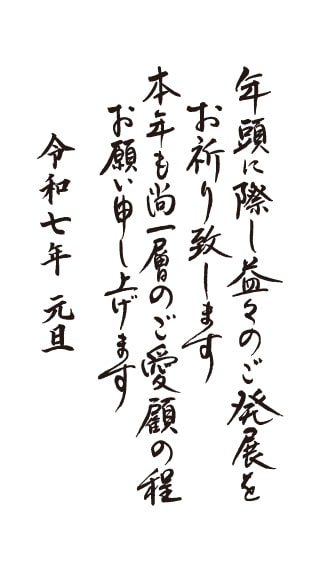 年頭に際し益々のご発展を
お祈り致します
本年も尚一層のご愛顧の程
お願い申し上げます
令和七年 元旦